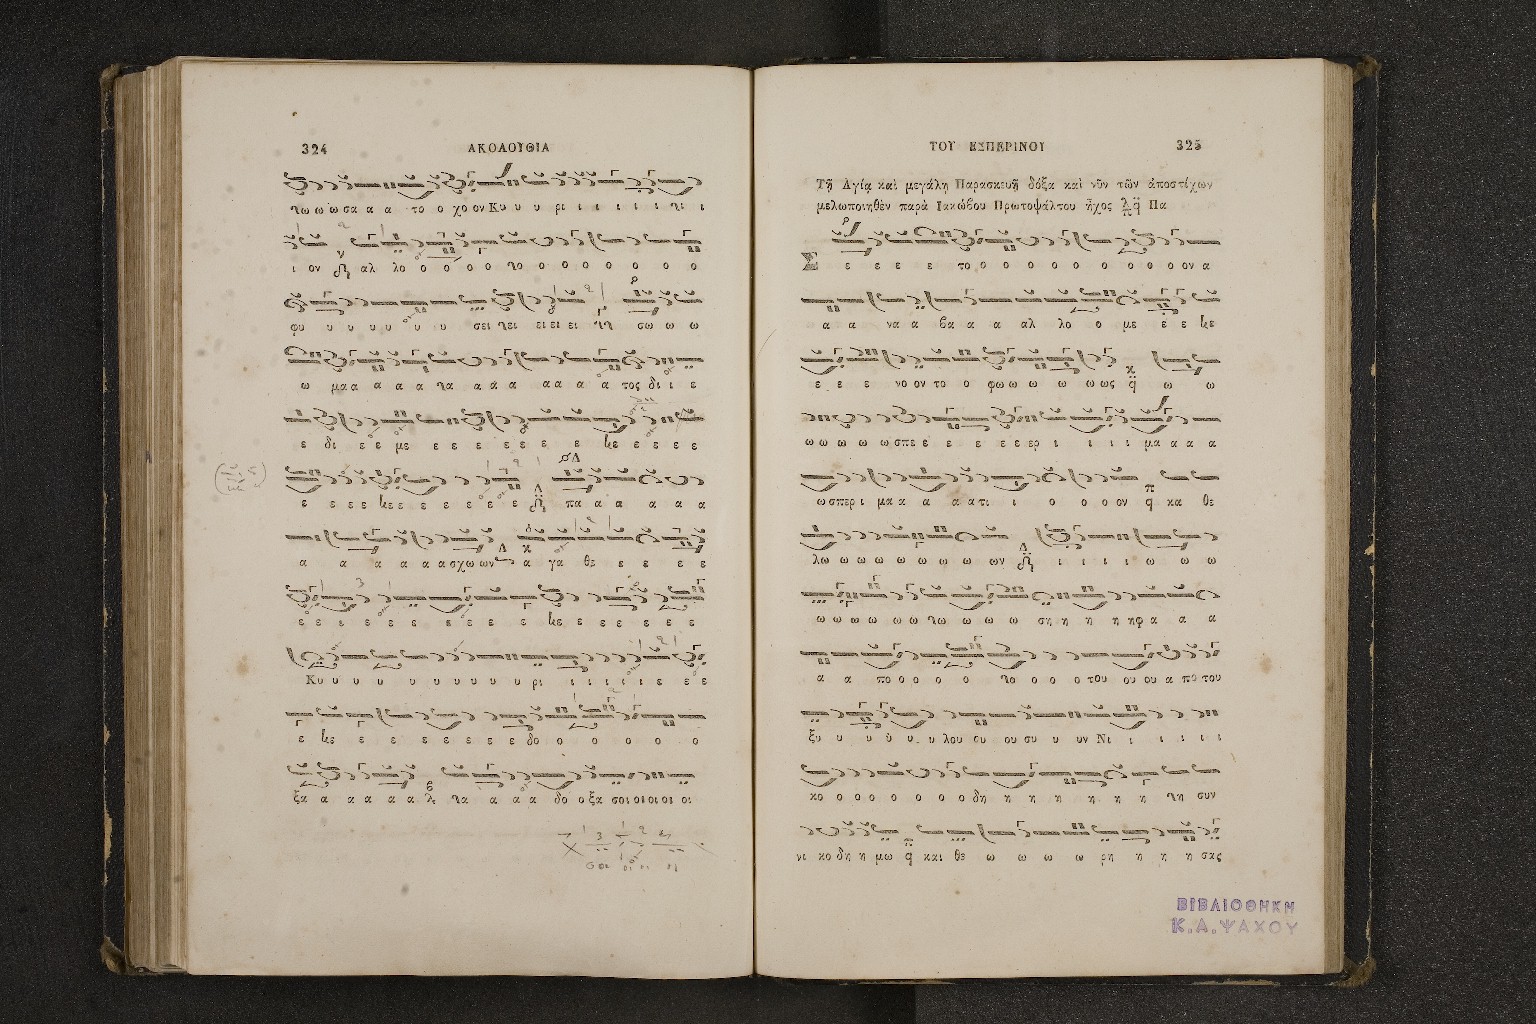 324 ΑΚΟΛΟΥΘΙΑ
τω ω ω σα α α το ο χο ον Κυ υ υ ρι ι ι ι ι ι τι ι
ι ον αλ λο ο ο ο ο ο το ο ο ο ο ο ο ο
φυ υ υ υ υ υ υ σει τει ει ει ει σω ω ω
ω μα α α α α τα α α α α α α α τος δι ι ε
ε δι ε ε με ε ε ε ε ε ε ε κε ε ε ε ε
ε ε ε ε κε ε ε ε ε ε ε ε πα α α α α α
α α α α α α σχω ων α γα θε ε ε ε ε
ε ε ε ε ε ε ε ε ε ε κε ε ε ε ε ε ε
Κυ υ υ υ υ υ υ υ υ υ ρι ι ι ι ι ε ε ε
ε κε ε ε ε ε ε ε ε δο ο ο ο ο ο ο
ξα α α α α α τα α α α δο ο ξα σοι οι οι οι οι
ΤΟΥ ΕΣΠΕΡΙΝΟΥ 325
Τῇ Αγίᾳ καὶ μεγάλη Παρασκευῇ δόξα καὶ νῦν τῶν ἀποστίχων
μελωποιηθὲν παρὰ Ιακώβου Πρωτοψάλτου ἦχος Πα
Σ ε ε ε ε το ο ο ο ο ο ο ο ο ο ον α
α α να α βα α α αλ λο ο με ε ε κε
ε ε ε νο ον το ο φω ω ω ω ω ως ω ω
ω ω ω ω ω σπε ε ε ε ε ε ερ ι ι ι ι μα α α α
ω σπερ ι μα α α α α τι ι ο ο ο ον κα θε
λω ω ω ω ω ω ω ω ω ων ι ι ι ι ω ω ω
ω ω ω ω ω ω τω ω ω ω ση η η η ηφ α α α
α α πο ο ο ο ο το ο ο ο του ου ου α πο του
ξυ υ υ υ υ υ λου συ ου συ υ υν Νι ι ι ι ι ι
κο ο ο ο ο ο ο ο δη η η η η η η τη συν
νι κο δη η μω και θε ω ω ω ω ρη η η η σας
ΒΙΒΛΙΟΘΗΚΗ
Κ.Α.ΨΑΧΟΥ